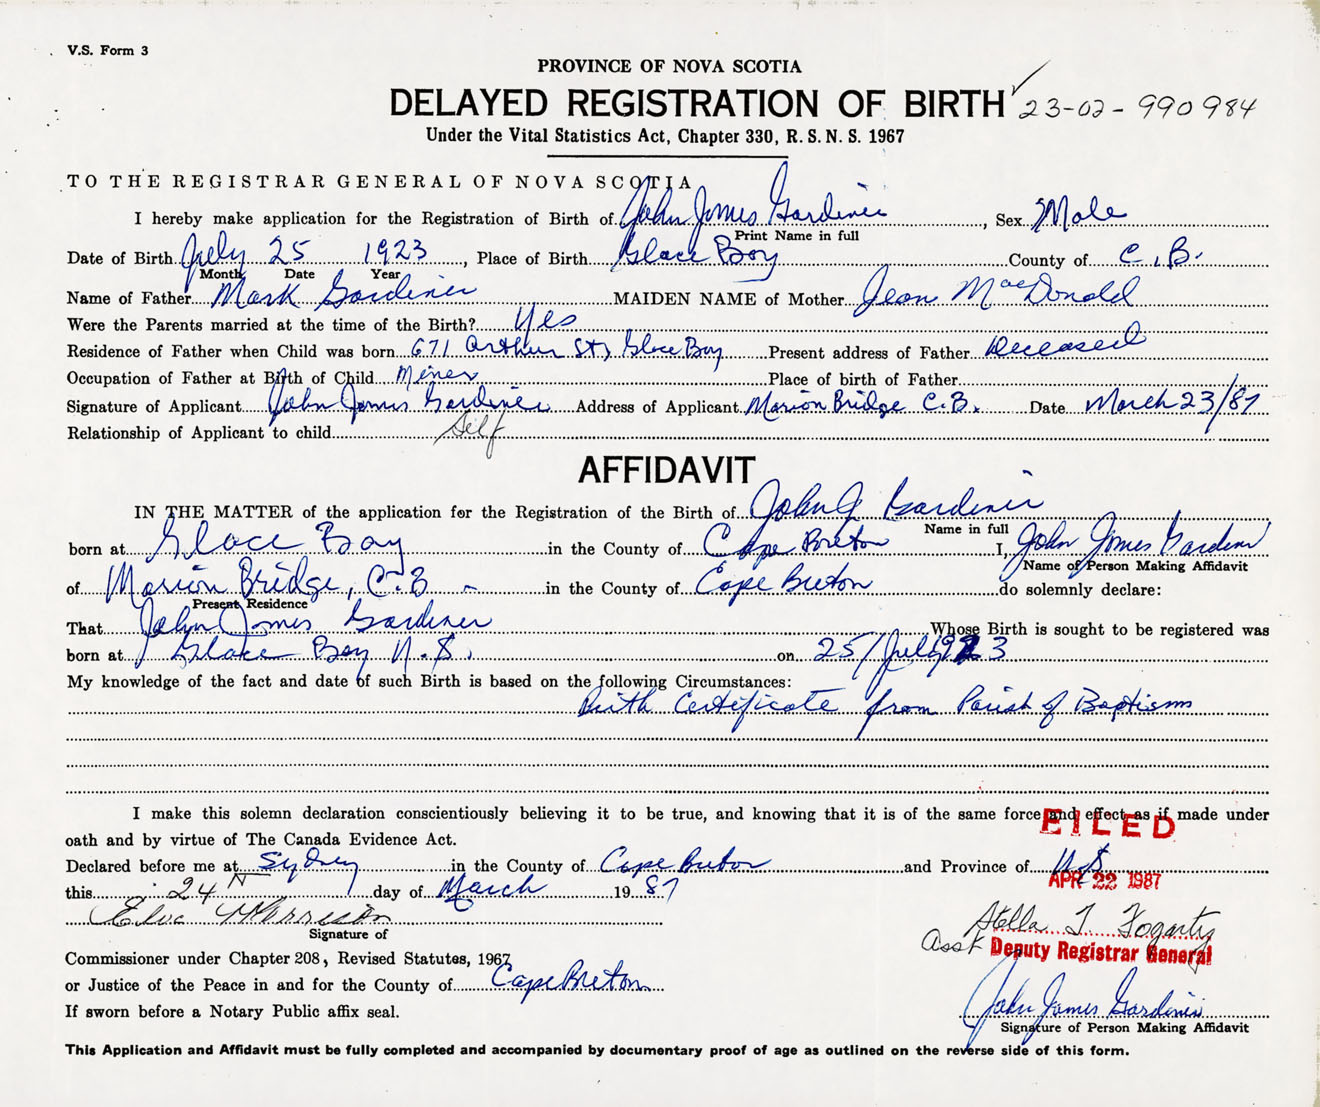 V.S. Form 3
PROVINCE OF NOVA SCOTIA
DELAYED REGISTRATION OF BIRTH ✓ 23-02-990984
Under the Vital Statistics Act, Chapter 330, R.S.N.S. 1967
TO THE REGISTRAR GENERAL OF NOVA SCOTIA
I hereby make application for the Registration of Birth of John James Gardiner, Sex Male
Print Name in full
Date of Birth July 25 1923, Place of Birth Glace Bay County of C.B.
Month Date Year
Name of Father Mark Gardiner MAIDEN NAME of Mother Jean MacDonald
Were the Parents married at the time of the Birth? Yes
Residence of Father when Child was born 671 Arthur St, Glace Bay Present address of Father Deceased
Occupation of Father at Birth of Child Miner Place of birth of Father
Signature of Applicant John James Gardiner Address of Applicant Marion Bridge C.B. Date March 23/87
Relationship of Applicant to child Self
AFFIDAVIT
IN THE MATTER of the application for the Registration of the Birth of John J Gardiner
Name in full
born at Glace Bay in the County of Cape Breton I, John James Gardiner
Name of Person Making Affidavit
of Marion Bridge, C.B - in the County of Cape Breton do solemnly declare:
Present Residence
That John James Gardiner Whose Birth is sought to be registered was
born at Glace Bay N.S. on 25/July/1923
My knowledge of the fact and date of such Birth is based on the following Circumstances:
Birth Certificate from Parish of Baptisms
I make this solemn declaration conscientiously believing it to be true, and knowing that it is of the same force and effect as if made under
FILED
oath and by virtue of The Canada Evidence Act.
Declared before me at Sydney in the County of Cape Breton and Province of N.S
APR 22 1987
this 24th day of March 1987
Signature of
Stella T. Fogarty
Asst Deputy Registrar General
Commissioner under Chapter 208, Revised Statutes, 1967
or Justice of the Peace in and for the County of Cape Breton
John James Gardiner
If sworn before a Notary Public affix seal.
Signature of Person Making Affidavit
This Application and Affidavit must be fully completed and accompanied by documentary proof of age as outlined on the reverse side of this form.